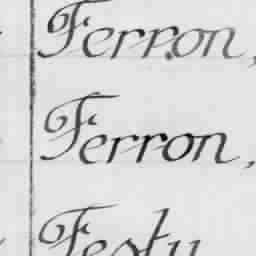 Ferron,
Ferron,
Festu